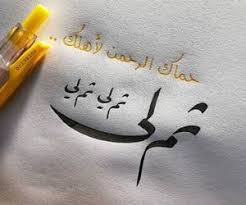 حماك الرحمن لأهلك ..
ثم لي ثم لي
ثم لي